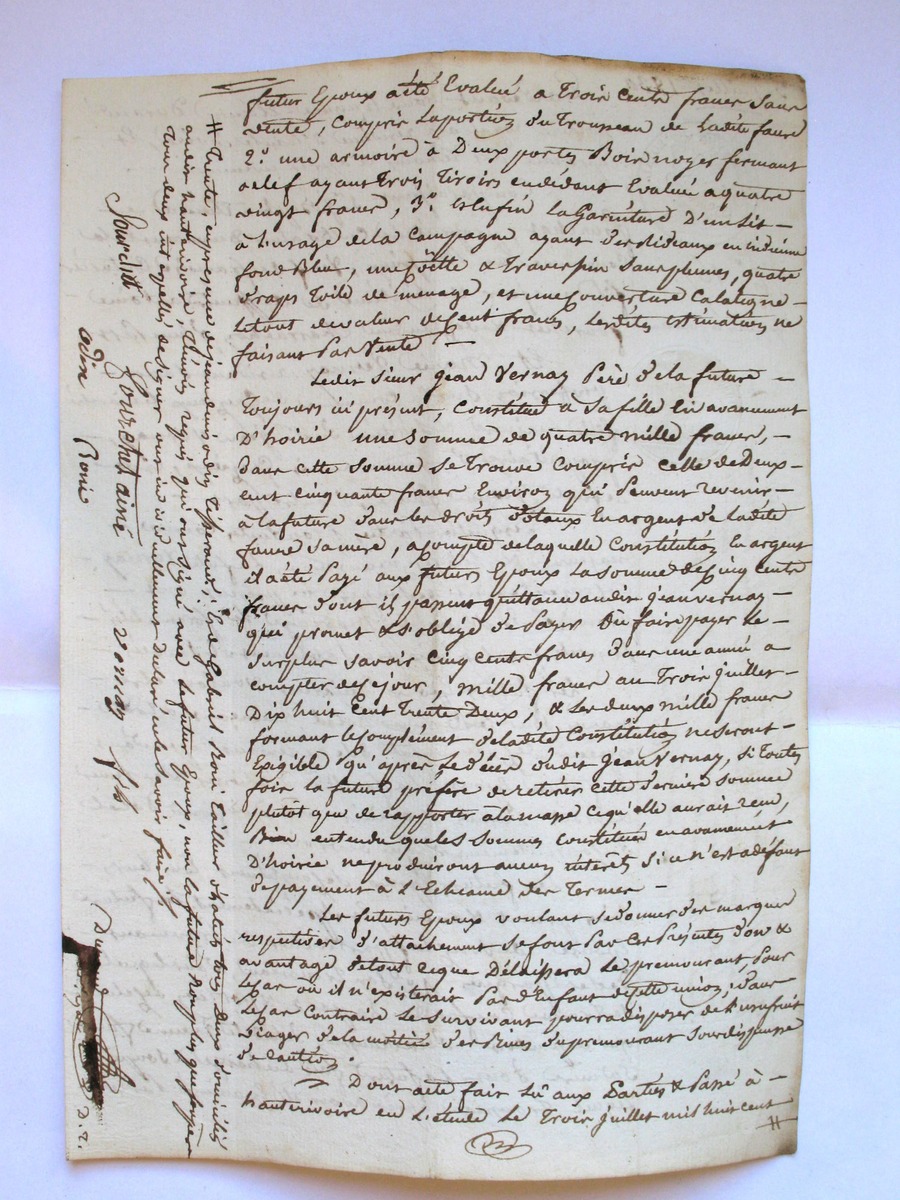 futur Epoux a été Evalué a Trois Cents francs Sans
vente, Compris la portion du Trousseau de ladite faure
2.º une armoire à Deux portes Bois noyer fermant
a clef ayant Trois Tiroirs en dedant Evalué a quatre
vingt francs, 3.º et Enfin la Garniture D'un lit
à l'usage de la Campagne ayant des Rideaux en indienne
fond Bleu, une Coëtte & Traversin Sans plumes, quatre
draps toile de menage, et une Couverture Catalogne
le tout de valeur de Cent francs, les dites estimations ne
faisant pas Vente
Ledit Sieur Jean Vernay Père de la future
Toujours ici présent, Constitue à sa fille En avancement
D'hoirie une Somme de quatre mille francs,
dans cette Somme se Trouve Compris celle de Deux
cent cinquante francs Environ qui Peuvent revenir
à la future dans les droits dotaux En argent de ladite
faure sa mère, a compte de laquelle Constitution En argent
il a été Payé aux futurs Epoux la Somme de Cinq Cents
francs dont ils passent quittance audit Jean Vernay
qui promet & s'oblige de Payer ou faire payer le
Surplus savoir Cinq Cents francs dans une année a
compter de ce jour, mille francs au Trois Juillet
Dix huit Cent Trente Deux, & Les deux mille francs
formant le Complément de ladite Constitution ne seront
Exigible qu'après le décès dudit Jean Vernay, si toutes
fois la future préfère de retirer cette dernière Somme
plutot que de rapporter à la masse ce qu'elle aurait reçu,
Bien entendu que les Sommes Constitués en avancement
D'hoirie ne produiront aucun intérêt si ce n'est a défaut
de payement à L'Echéance des Termes
Les futurs Epoux voulant se donner des marques
respectives d'attachement se font Par ces Présentes don &
avantage de tout ce que Délaissera le premourant, pour
le cas où il n'existerait Pas d'Enfant de cette union, dans
le cas Contraire le Survivant pourra disposer de l'usufruit
viager de la moitié des Biens du premourant sous dispense
de Caution.
Dont acte fait lû aux Parties & Passé à
hauterivoire en L'etude le Trois Juillet mil huit cent
# Trente, en présence de Jean denis odin Tisserand, & de Gabriel Roni Tailleur d'habits tous deux domiciliés
audit hauterivoire, Témoins requis qui ont signé avec le futur Epoux, non la future non plus que son père
Tous deux interpellés de signer ont individuellement déclaré ne le savoir faire
Sourdillt Pourchet ainé Vernay fils
odin Roni
D. L.